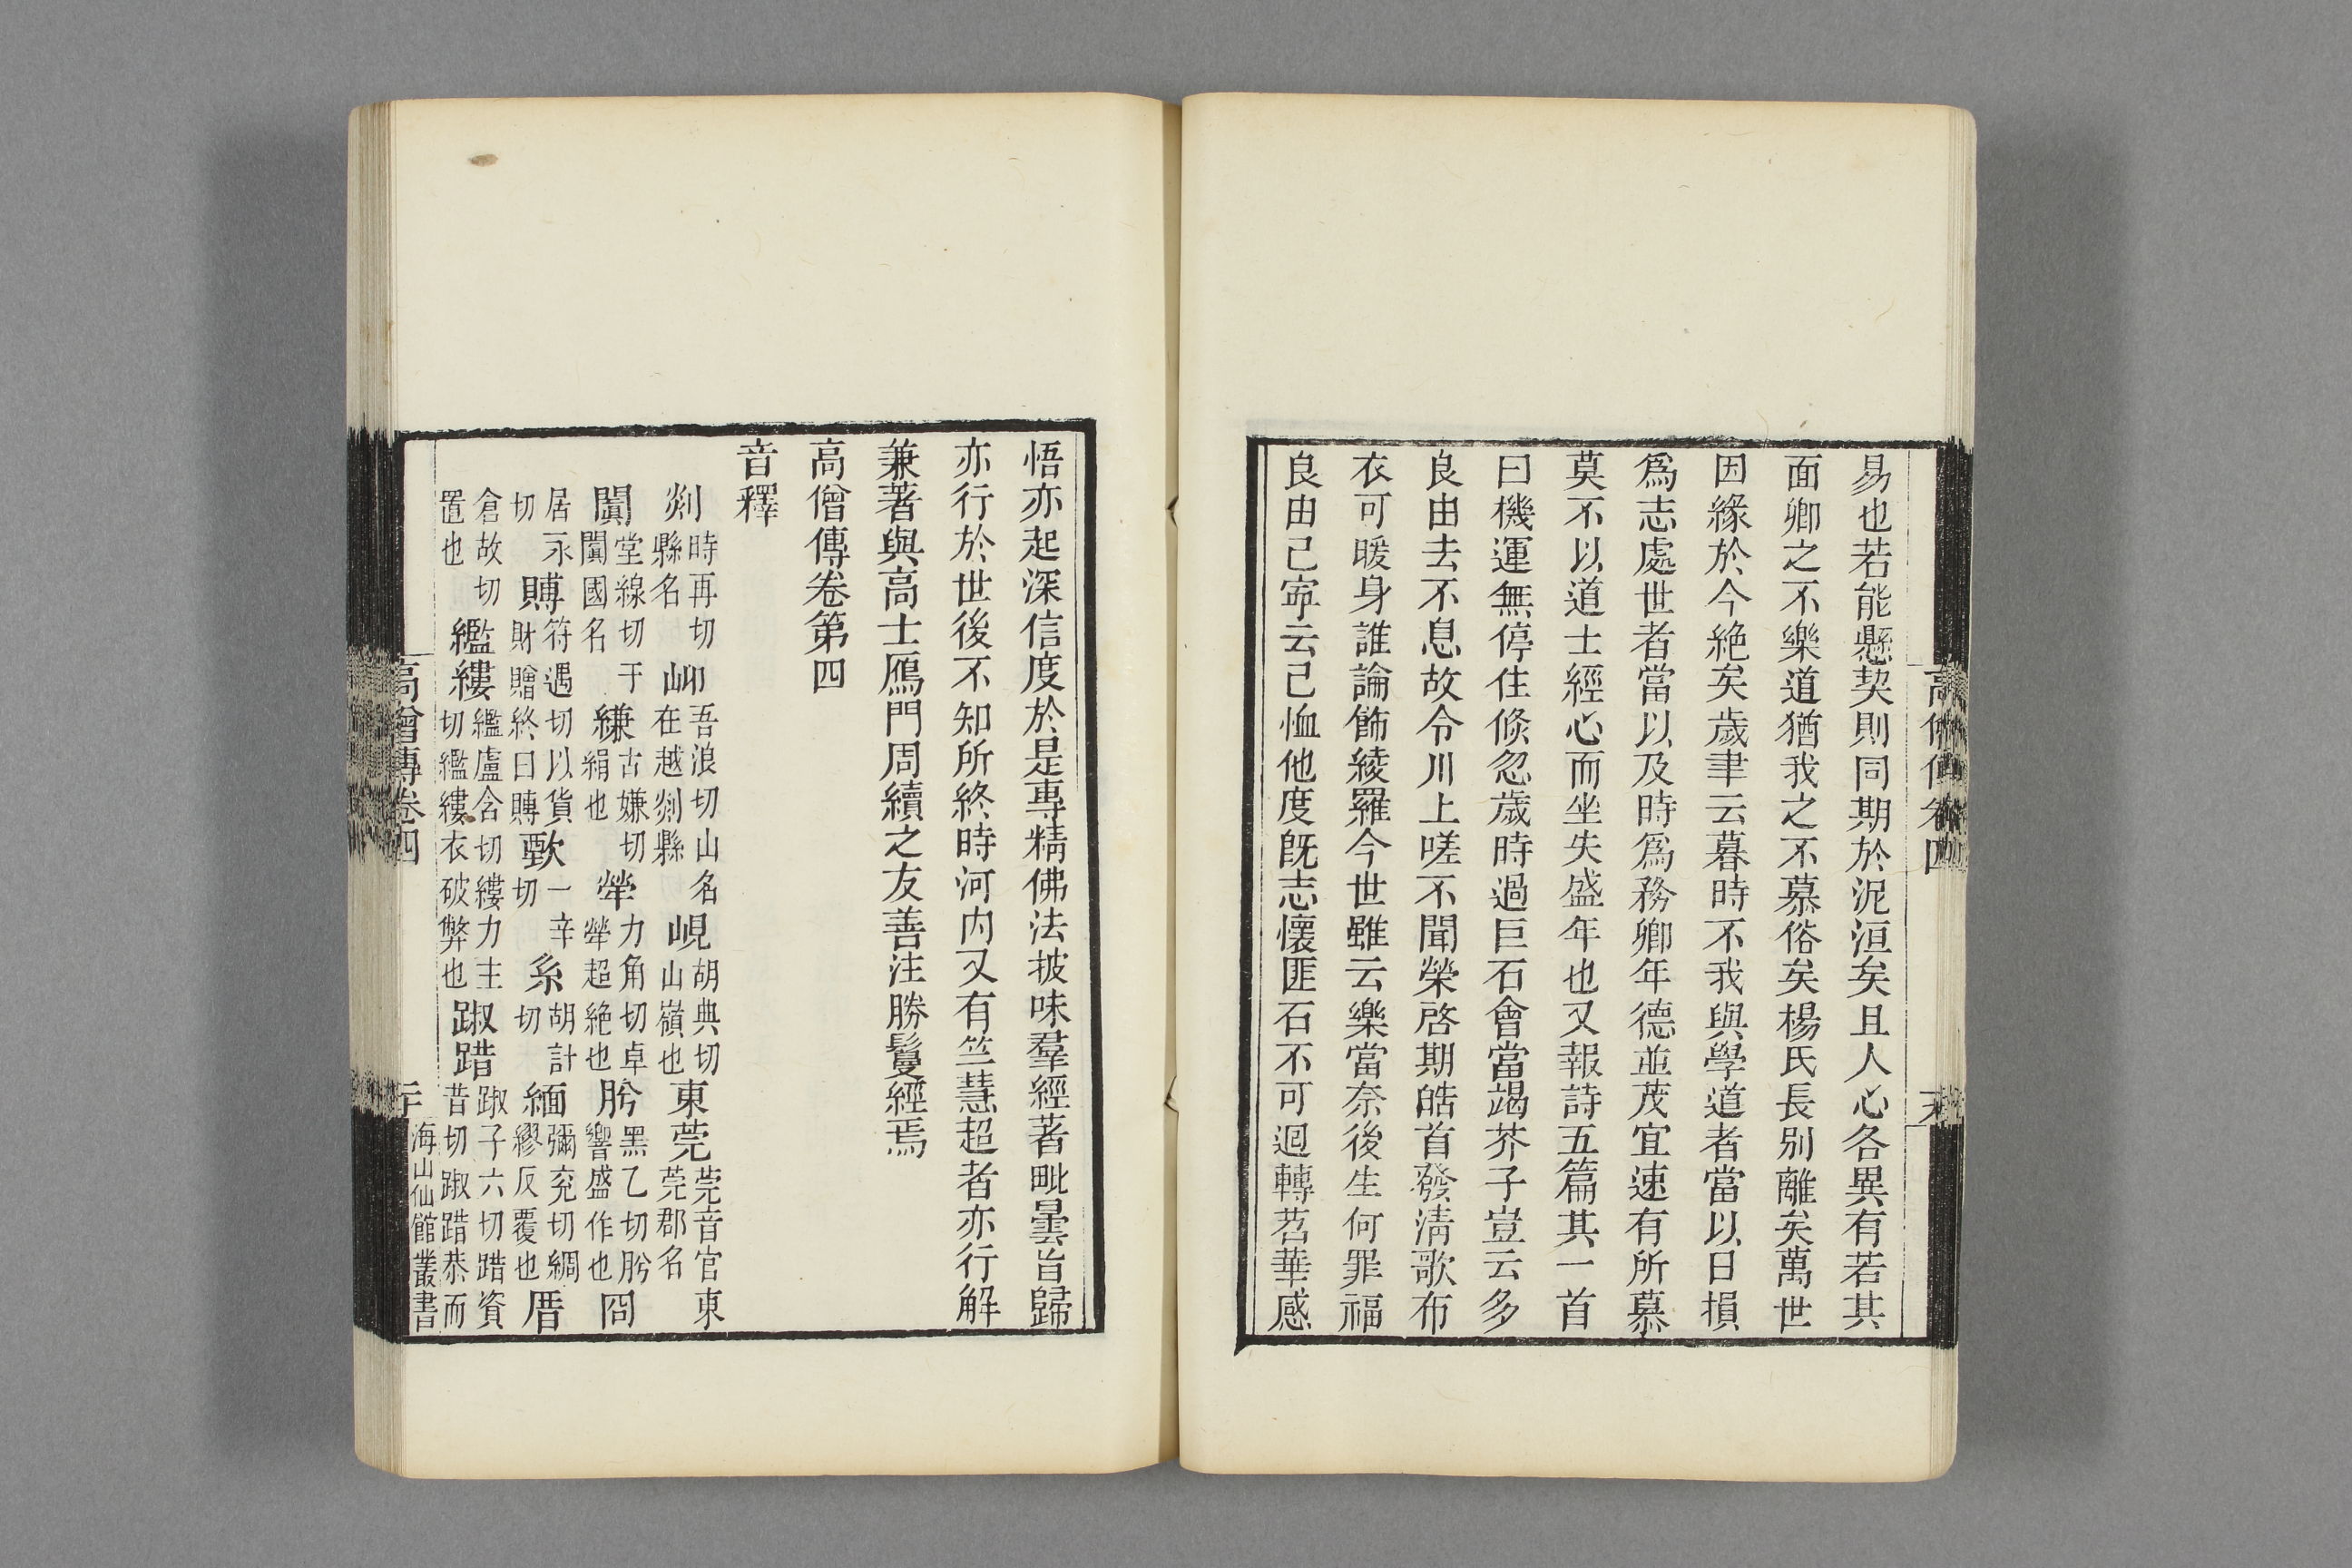 易也若能懸契則同期於泥洹矣且人心各異有若其
面卿之不樂道猶我之不慕俗矣楊氏長別離矣萬世
因緣於今絶矣歲聿云暮時不我與學道者當以日損
爲志處世者當以及時爲務卿年德並茂宜速有所慕
莫不以道士經心而坐失盛年也又報詩五篇其一首
曰機運無停住倐忽歲時過巨石會當竭芥子豈云多
良由去不息故令川上嗟不聞榮啓期皓首發清歌布
衣可暖身誰論飾綾羅今世雖云樂當奈後生何罪福
良由己寧云己恤他度旣志懷匪石不可迴轉苕華感
悟亦起深信度於是專精佛法披味羣經著毗曇旨歸
亦行於世後不知所終時河内又有竺慧超者亦行解
兼著與高士鴈門周續之友善注勝鬘經焉
高僧傳卷第四
音釋
剡時再切縣名 岇吾浪切山名在越剡縣 峴胡典切山嶺也 東莞莞音官東莞郡名
闐堂線切于闐國名 縑古嫌切絹也 犖力角切卓犖超絶也 肸黑乙切肸響盛作也 冏
居永切 賻符遇切以貨財贈終曰賻 甄一辛切 系胡計切 緬彌兖切綢繆反覆也 厝
倉故切置也 繿縷繿盧含切縷力主切繿縷衣破弊也 踧踖踧子六切踖資昔切踧踖恭而
高僧傳卷四
海山仙館叢書